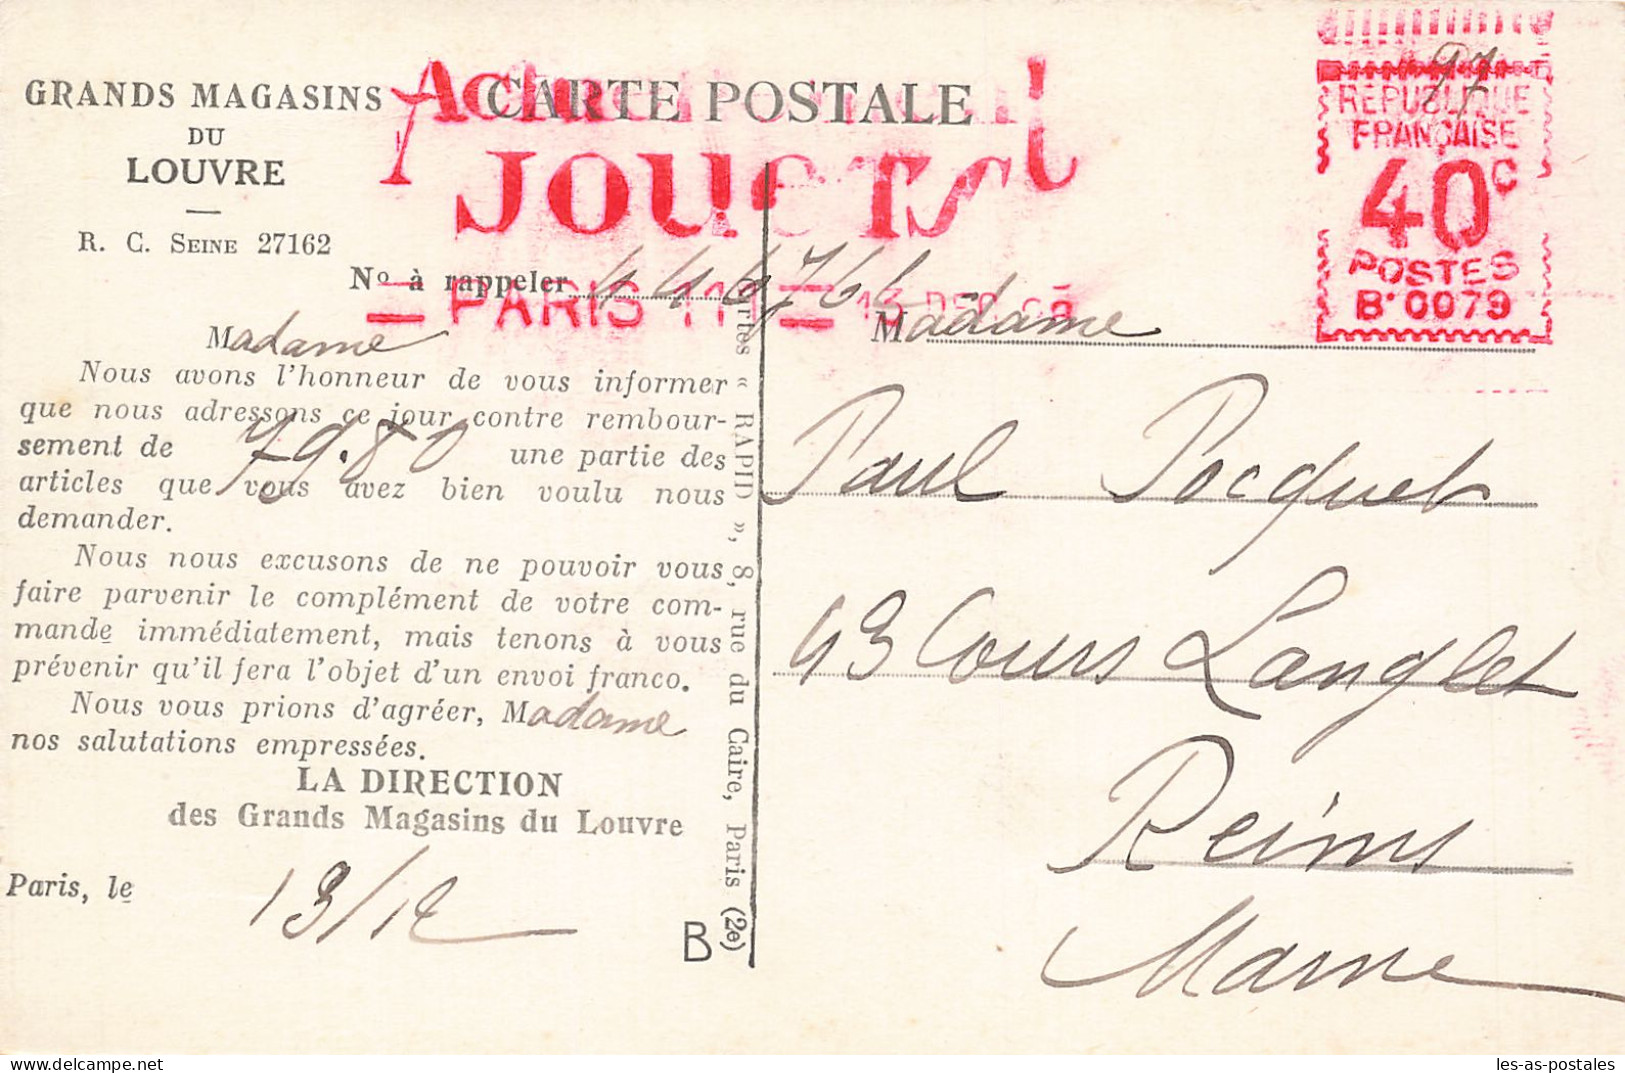 GRANDS MAGASINS
DU
LOUVRE
R. C. SEINE 27162
CARTE POSTALE
JOUETS
PARIS
13 DEC
REPUBLIQUE
FRANÇAISE
40c
POSTES
B·0079
97
No à rappeler
Madame
Nous avons l'honneur de vous informer
que nous adressons ce jour contre rembour-
sement de 79.80 une partie des
articles que vous avez bien voulu nous
demander.
Nous nous excusons de ne pouvoir vous
faire parvenir le complément de votre com-
mande immédiatement, mais tenons à vous
prévenir qu'il fera l'objet d'un envoi franco.
Nous vous prions d'agréer, Madame
nos salutations empressées.
LA DIRECTION
des Grands Magasins du Louvre
Paris, le 13/12
B
Cartes « RAPID », 8, rue du Caire, Paris (2e)
Madame
Paul Pocquet
43 Cours Langlet
Reims
Marne
Delcampe.net
les-as-postales